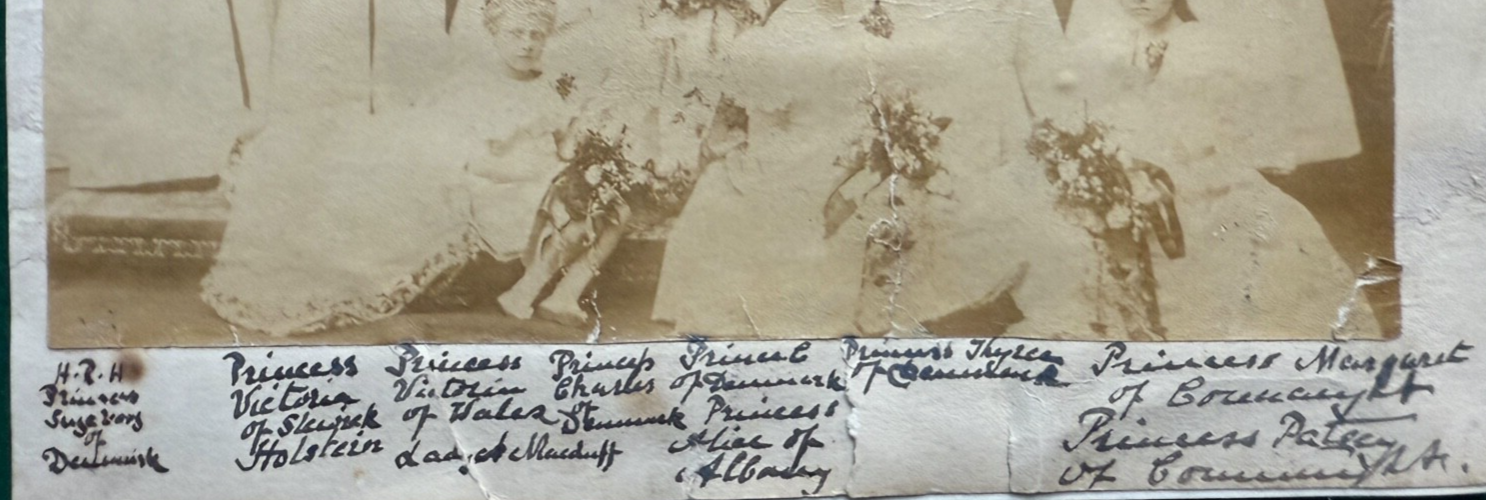 H.R.H
Princess
Ingeborg
of
Denmark
Princess
Victoria
of Sleswick
Holstein
Princess
Victoria
of Wales
Lady A Macduff
Princess
Charles
of
Denmark
Prince C
of Denmark
Princess
Alice of
Albany
Princess Thyra
of Denmark
Princess Margaret
of Connaught
Princess Patsy
of Connaught.